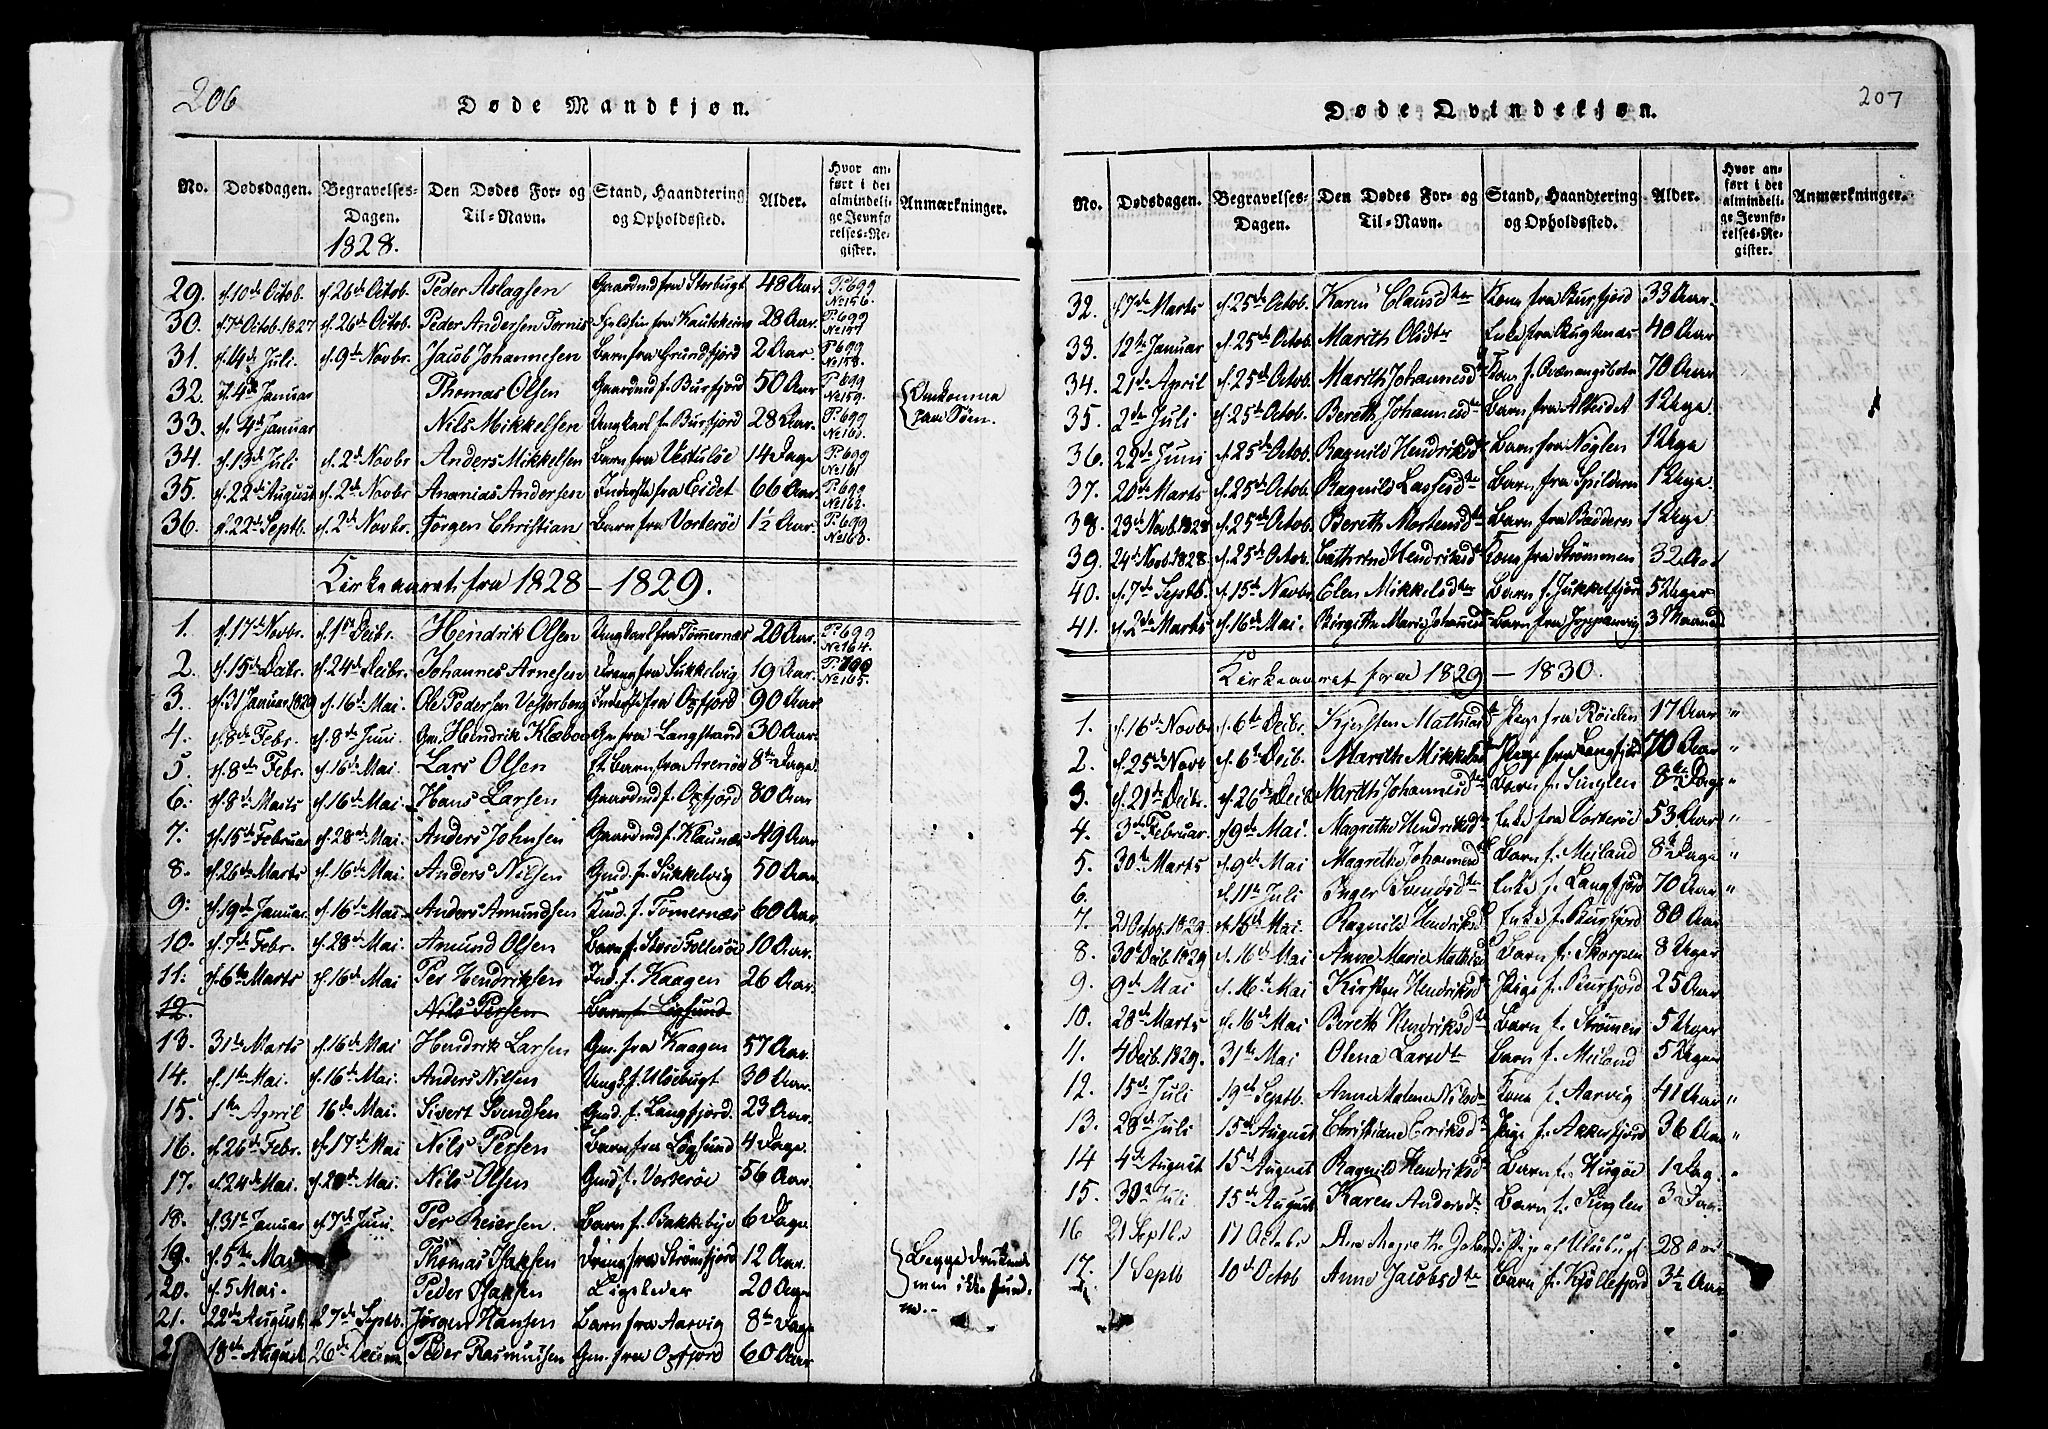 206
Døde Mandkjøn.
No. Dødsdagen. Begravelses-Dagen. Den Dødes For- og Til-Navn. Stand, Haandtering og Opholdssted. Alder. Hvor anført i det almindelige Jevnførelses-Register. Anmærkninger.
1828.
29. d. 10de Octob. d. 26de Octob. Peder Aslagsen Gaardmd fra Storbugt 48 Aar. P. 699 No 156.
30. d. 7de Octob. 1827 d. 26de Octob. Peder Andersen Tornis Fjeldfin fra Kautokeino 28 Aar. P. 699 No 157
31. d. 4de Juli. d. 9de Novbr. Jacob Johannesen Barn fra Grundfjord 2 Aar. P. 699 No 158.
32. d. 4de Januar Thomas Olsen Gaardmd f. Burfjord 50 Aar P. 699 No 159. Omkomne
33. d. 4de Januar Nils Mikkelsen Ungkarl f. Burfjord 28 Aar. P. 699 No 160. paa Søen.
34. d. 13de Juli d. 2de Novbr Anders Mikkelsen Barn fra 14 Dage P. 699 No 161
35. d. 22de August d. 2de Novbr Ananias Andersen Inderste fra Eidet 66 Aar. P. 699 No 162.
36. d. 22de Septb. d. 2de Novbr. Jørgen Christian Barn fra Vorterøe 1½ Aar. P. 699 No 163.
Kirkeaaret fra 1828 - 1829.
1. d. 17de Novbr. d. 1ste Decbr. Hendrik Olsen Ungkarl fra Tømmernæs 20 Aar. P. 699 No 164.
2. d. 15de Decbr. d. 24de Decbr. Johannes Arnesen Dreng fra Sukkelvig 19 Aar. P. 700 No 165.
3. d. 31 Januar 1829 d. 16de Mai. Ole Pedersen Vesterberg Inderste fra Oxfjord 90 Aar
4. d. 8de Febr. d. 8de Juni. Gm. Hendrik Klæboe Gm fra Langstrand 30 Aar.
5. d. 8de Febr. d. 16de Mai. Lars Olsen Barn fra Arenøe 8te Dage.
6. d. 8de Marts d. 16de Mai Hans Larsen Gaardmd f. Oxfjord 80 Aar
7. d. 15de Februar d. 28de Mai. Anders Johnsen Gaardmd f. Klaunæs 49 Aar
8. d. 26de Marts d. 16de Mai. Anders Nilsen Gmd. f. Sukkelvig 50 Aar.
9. d. 19de Januar. d. 16de Mai Anders Amundsen f. Tømernæs 60 Aar.
10. d. 7de Febr. d. 28de Mai. Amund Olsen Barn f. Store Follesøe 10 Aar.
11. d. 6te Marts d. 16de Mai Per Hendriksen Ind. f. Kaagen 26 Aar.
12. Nils Persen Barn f. Løgsund
13. 31te Marts d. 16de Mai Hendrik Larsen Gm. fra Kaagen 57 Aar.
14. d. 1te Mai. d. 16de Mai. Anders Nilsen Ungk. f. Uløebugt 30 Aar.
15. 1te April 16de Mai. Sivert Svendsen Gmd. f. Langfjord. 23 Aar.
16. d. 26de Febr. d. 17de Mai Nils Persen Barn fra Løgsund 4 Dage.
17. d. 24de Mai. d. 28de Mai. Nils Olsen Gmd f. Vorterøe 56 Aar.
18. d. 31te Januar d. 7de Juni. Per Reiersen. Barn f. Bakkebye 6 Dage
19. d. 5te Mai Thomas Isaksen Dreng fra Strømfjord 12 Aar. Begge druknede
20. d. 5 Mai. Peder Isaksen Ligeleder 20 Aar men ikke fund-
21. 22de August d. 27de Septb. Jørgen Hansen Barn fra Aarvig 8te Dage ne.
18de August 26de Peder Rasmussen Gm. fra Oxfjord 60 Aar
207
Døde Qvindekjøn.
No. Dødsdagen. Begravelses-Dagen. Den Dødes For- og Til-Navn. Stand, Haandtering og Opholdssted. Alder. Hvor anført i det almindelige Jevnførelses-Register. Anmærkninger.
32. d. 7de Marts d. 25de Octob. Karen Clausdtr Kone fra Burfjord 33 Aar.
33. 12te Januar d. 25de Octob. Marith Olsdtr Enke fra 40 Aar
34. 21de April d. 25de Octob. Marith Johannesd Kone f. Qvænangsbotn 70 Aar
35. 2de Juli d. 25de Octob. Bereth Johannesdtr Barn fra Alteidet 1 Uge.
36. 22de Juni d. 25de Octob. Ragnild Hendriksd Barn fra Nøglen 1 Uge
37. 20de Marts d. 25de Octob. Ragnild Lassesdtr Barn fra Spilderen 1 Uge.
38. 23de Novb. 1828 d. 25de Octob. Bereth Mortensdtr Barn fra Badderen 1 Uge
39. 24de Novb. 1828 d. 25de Octob. Cathrine Hendriksdtr Kone fra Strømmen 32 Aar
40. d. 7de Septb. d. 15de Novbr Elen Mikkelsdtr Barn f. Jukkelfjord 5 Uger
41. Marts d. 16de Mai. Birgithe Marie Johannesd Barn fra Joppanvig 3 Maaned
Kirkeaaret fra 1829 - 1830.
1. d. 16de Novbr d. 6te Decbr. Kjersten Mathiasd Pige fra Røielen 17 Aar "
2. d. 25de Novb d. 6te Decb. Marith Mikkelsd Pige fra Langfjord 70 Aar "
3. d. 21de Decbr. d. 26de Decb Marith Johannesdtr Barn f. Singlen 8te Dage "
4. 3de Februar. d. 9de Mai. Magrethe Hendriksd Enke fra Vorterøe 53 Aar "
5. 30te Marts d. 9de Mai Magrethe Johannesd Barn f. Meiland 8te Dage "
6. d. 11te Juli Inger Svendsdtr Enke f. Langfjord 70 Aar "
7. 2 Octob. 1829 d. 15de Mai. Ragnild Hendriksd Enke f. Burfjord 80 Aar
8. 30te Decb. 1829 d. 16de Mai Anne Marie Mathiasd Barn f. Skorpen 8 Uger
9. 9de Mai d. 16de Mai Kirsten Hendriksd Pige f. Burfjord 25 Aar
10. 28de Marts d. 16de Mai Bereth Hendriksdtr Barn f. Strømen 5 Uger
11. 4 Decb. 1829. 31te Mai Olena Larsdtr Barn f. Meiland 5 Uger
12. 15de Juli 19de Septb. Anne Malene Nilsd Kone f. Aarvig 41 Aar "
13. 28de Juli 15de August Christiane Eriksd Pige f. Akkerfjord 36 Aar "
14 4de August 15de August Ragnild Hendriksd Barn f. Hirgøe 1 Dag. "
15. 30te Juli 15de August Karen Andersdtr Barn f. Singlen 3 Dage
16 21 Septbr 17 October Ane Magrethe Pige af Uløibugt 28 Aar
17. 1 Septb 10de Octob Anne Jacobsdtr Barn f. Kjøllefjord 3½ Aar